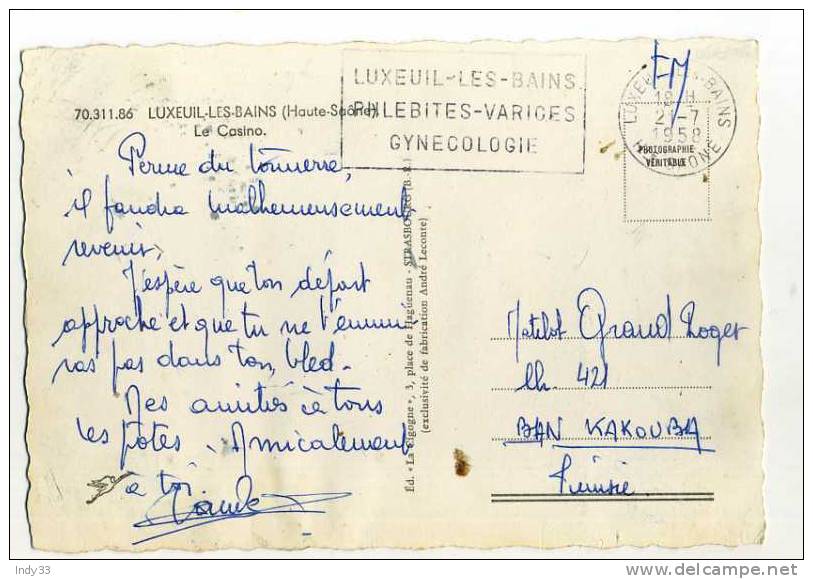 70.311.86 LUXEUIL-LES-BAINS (Haute-Saône)
Le Casino.
LUXEUIL-LES-BAINS
PHLEBITES-VARICES
GYNECOLOGIE
FM
LUXEUIL-LES-BAINS
18 H
21-7
1958
Hte SAONE
PHOTOGRAPHIE
VÉRITABLE
Perme du tonnerre,
il faudra malheureusement
revenir.
J'espère que ton départ
approche et que tu ne t'ennuie-
ras pas dans ton bled.
Mes amitiés à tous
les potes. Amicalement
à toi.
Éd. «La Cigogne», 3, place de Haguenau - STRASBOURG (B.-R.)
(exclusivité de fabrication André Leconte)
Matelot Grand Roger
Ch. 421
BAN KAKOUBA
Tunisie
Indy33